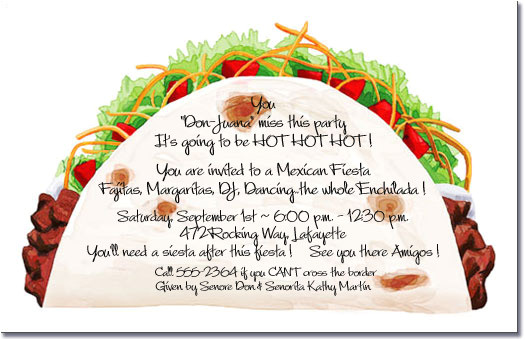 You
"Don-Juana" miss this party
It's going to be HOT HOT HOT !
You are invited to a Mexican Fiesta
Fajitas, Margaritas, DJ, Dancing...the whole Enchilada !
Saturday, September 1st ~ 6:00 p.m. - 12:30 p.m.
472 Rocking Way, Lafayette
You'll need a siesta after this fiesta ! See you there Amigos !
Call 555-2364 if you CAN'T cross the border
Given by Senore Don & Senorita Kathy Martin